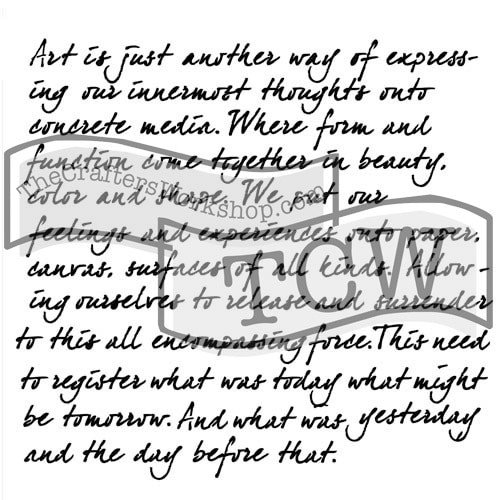 Art is just another way of express-
ing our innermost thoughts onto
concrete media. Where form and
function come together in beauty,
color and shape. We put our
feelings and experiences onto paper,
canvas, surfaces of all kinds. Allow-
ing ourselves to release and surrender
to this all encompassing force. This need
to register what was today what might
be tomorrow. And what was yesterday
and the day before that.
TheCraftersWorkshop.com
TCW